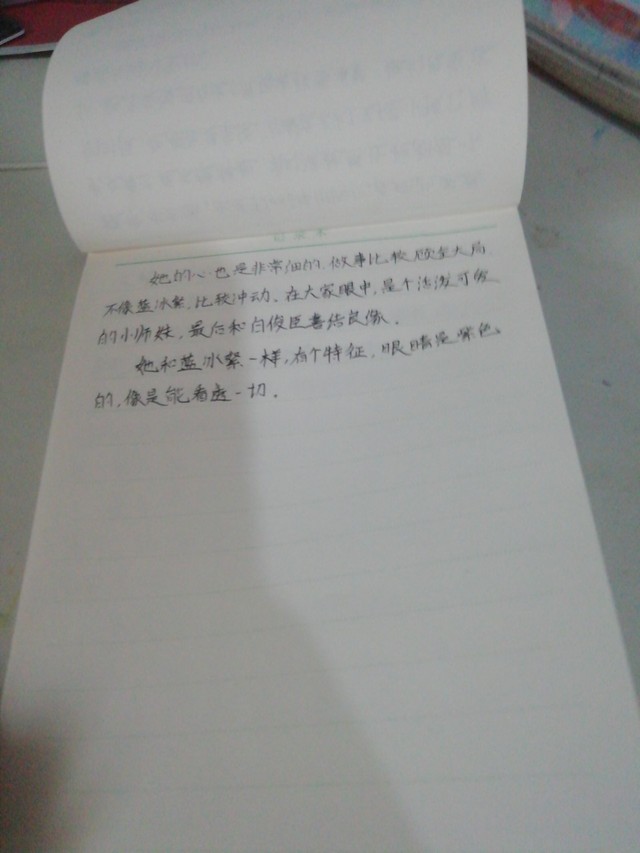 她的心也是非常细的,做事比较顾全大局
不像蓝冰絮,比较冲动。在大家眼中,是个活泼可爱
的小师妹,最后和白俊臣喜结良缘。
她和蓝冰絮一样,有个特征,眼睛是紫色
的,像是能看透一切。